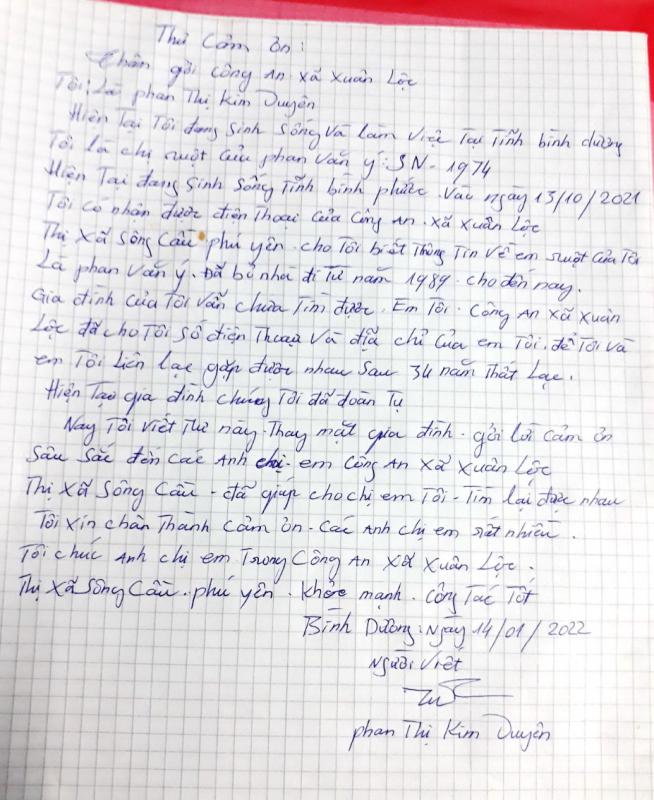 Thư Cảm ơn :
Chân gởi công An xã Xuân Lộc
Tôi: Là phan Thị Kim Duyên
Hiện Tại Tôi đang sinh sống và làm việc Tại Tỉnh bình dương
Tôi là chị ruột của phan văn ý: SN - 1974
Hiện Tại đang sinh sống Tỉnh bình phước. Vào ngày 13/10/2021
Tôi có nhận được điện Thoại của Công An. xã Xuân Lộc
Thị Xã Sông Cầu. phú yên. cho Tôi biết Thông Tin về em ruột của Tôi
Là phan văn ý. Đã bỏ nhà đi Từ năm 1989. cho đến nay.
Gia đình của Tôi vẫn chưa Tìm được. Em Tôi. Công An Xã Xuân
Lộc đã cho Tôi số điện Thoại và địa chỉ của em Tôi. để Tôi và
em Tôi liên lạc gặp được nhau sau 34 năm Thất Lạc.
Hiện Tại gia đình chúng Tôi đã đoàn Tụ
Nay Tôi viết Thư này. Thay mặt gia đình. gởi lời cảm ơn
sâu sắc đến các Anh chị. em Công An Xã Xuân Lộc
Thị Xã Sông Cầu - đã giúp cho chị em Tôi - Tìm lại được nhau
Tôi xin chân Thành cảm ơn - các Anh chị em rất nhiều.
Tôi chúc Anh chị em Trong Công An Xã Xuân Lộc.
Thị Xã Sông Cầu. phú yên. khỏe mạnh. công Tác Tốt
Bình Dương: Ngày 14/01/2022
Người viết
phan Thị Kim Duyên